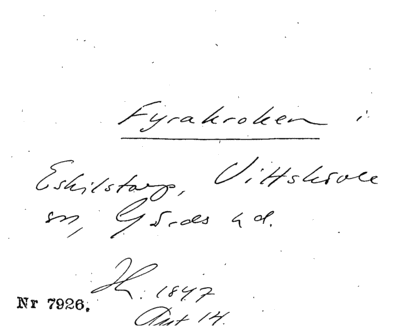 Fyrakroken i
Eskilstorp, Vittskövle
sn, Gärds hd.
1847
Nr 7926.
Ant 14.